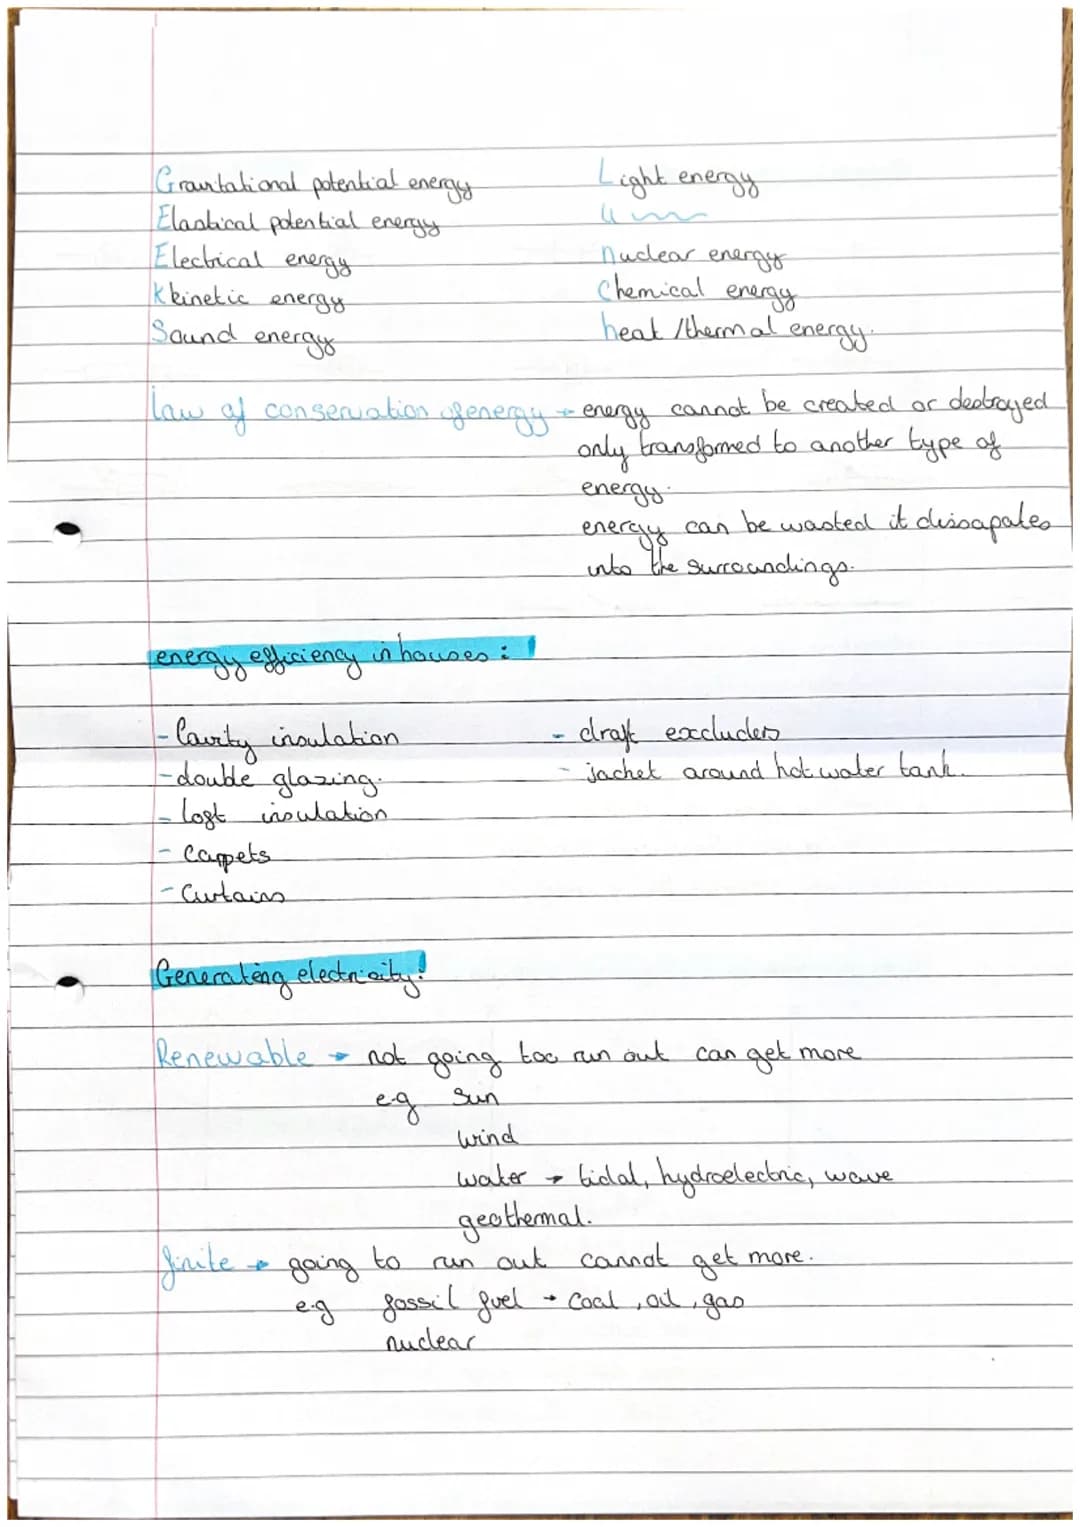 Gravitational potential energy
Elastical potential energy
Electrical energy
Kkinetic energy
Sound energy
Light energy
nuclear energy
Chemical energy
heat / thermal energy.
law of conservation of energy → energy cannot be created or destroyed
only transformed to another type of
energy.
energy can be wasted it dissapates
into the surroundings.
energy efficiency in houses :
- Cavity insulation
- double glazing.
- loft insulation
- Carpets
- Curtains
- draft excluders
- jacket around hot water tank.
Generating electricity:
Renewable → not going too run out can get more
e.g sun
wind
water → tidal, hydroelectric, wave
geothermal.
finite → going to run out cannot get more.
e.g fossil fuel → coal, oil, gas
nuclear